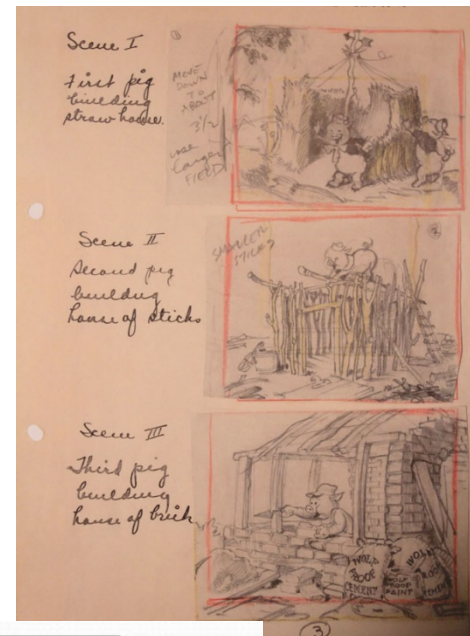 Scene I
First pig
building
straw house.
1
MOVE
DOWN
TO
ABOUT
3 1/2
use
Larger
FIELD
Scene II
Second pig
building
house of sticks
SMALLER
STICKS
2
Scene III
Third pig
building
house of brick
WOLF
PROOF
CEMENT
WOLF
PROOF
PAINT
WOLF
PROOF
CEMENT
3